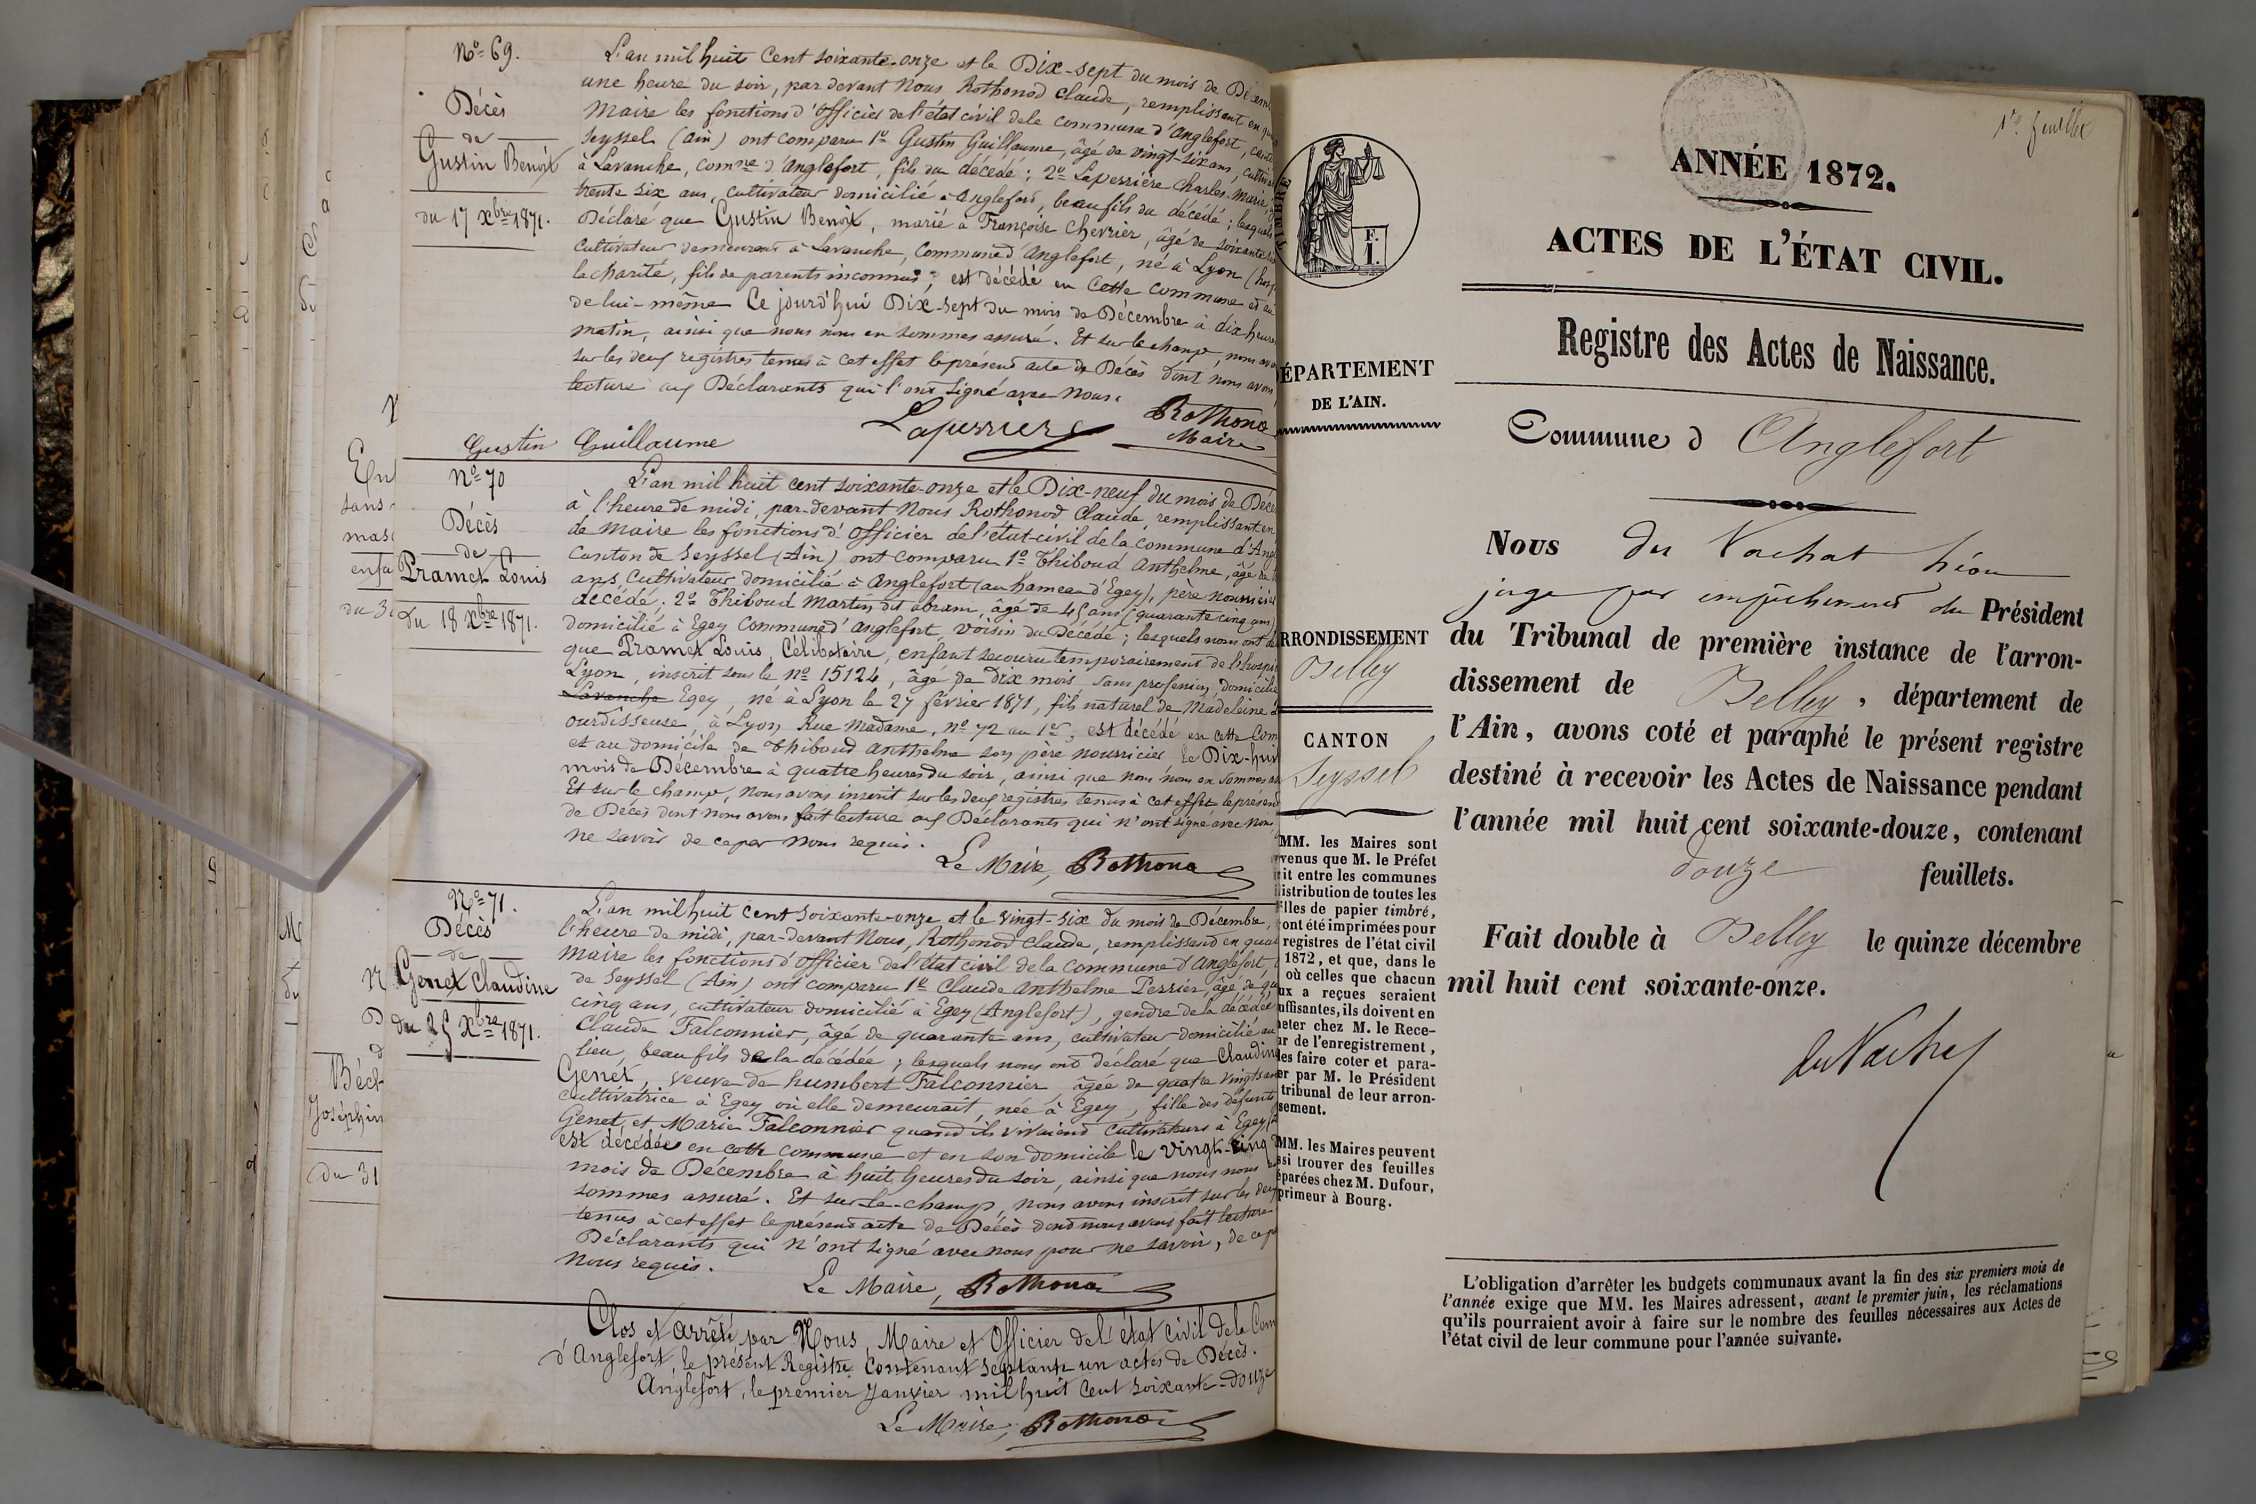 Nº 69.
Décès
de
Gustin Benoit
du 17 Xbre 1871.
L'an mil huit cent soixante-onze et le Dix-sept du mois de Décem
une heure du soir, par devant Nous Rothonod Claude, remplissant en qua
Maire les fonctions d'officier de l'état civil de la commune d'Anglefort, canto
Seyssel (Ain) ont comparu 1º Gustin Guillaume, âgé de vingt-six ans, cultiva
à Lavanche, comne d'Anglefort, fils du décédé; 2º Laperrière Charles-Marie,
trente six ans, cultivateur domicilié à Anglefort, beau fils du décédé; lesquels
Déclaré que Gustin Benoit, marié à Françoise Chevrier, âgé de soixante
Cultivateur demeurant à Lavanche, Commune d'Anglefort, né à Lyon (hosp
la charité, fils de parents inconnus, est décédé en cette commune et au
de lui-même Ce jourd'hui Dix-sept du mois de Décembre à dix heures
matin, ainsi que nous nous en sommes assuré. Et sur le champ, nous av
sur les deux registres tenus à cet effet le présent acte de Décès dont nous avons
lecture aux Déclarants qui l'ont signé avec Nous.
Laperrière Rothonod
Maire
Gustin Guillaume
Nº 70
Décès
de
Pramet Louis
Du 18 Xbre 1871.
L'an mil huit cent soixante-onze et le Dix-neuf du mois de Déce
à l'heure de midi, par-devant Nous Rothonod Claude, remplissant en
de Maire les fonctions d'officier de l'état-civil de la commune d'Angl
Canton de Seyssel (Ain) ont comparu 1º Thiboud Anthelme, âgé de
ans, Cultivateur domicilié à Anglefort (au hameau d'Egey), père nourricier
décédé. 2º Thiboud Martin dit abram, âgé de 45 ans (quarante cinq ans)
domicilié à Egey Commune d'Anglefort, voisin du Décédé; lesquels nous ont d
que Pramet Louis, Célibataire, enfant secouru temporairement de l'hospi
Lyon, inscrit sous le nº 15124, âgé de dix mois sans profession, domicilié
Lavanche Egey, né à Lyon le 27 février 1871, fils naturel de Madeleine
ourdisseuse, à Lyon, Rue Madame, nº 72 au 1er, est décédé en cette Com
et au domicile de Thiboud Anthelme son père nourricier le Dix-huit
mois de Décembre à quatre heures du soir, ainsi que nous nous en sommes
Et sur le champ, nous avons inscrit sur les deux registres tenus à cet effet le présent
de Décès dont nous avons fait lecture aux Déclarants qui n'ont signé avec Nous,
ne savoir de ce par nous requis.
Le Maire, Rothonod
Nº 71.
Décès
de
Genet Claudine
du 25 Xbre 1871.
L'an mil huit cent soixante-onze et le vingt-six du mois de Décembre,
l'heure de midi, par-devant Nous, Rothonod Claude, remplissant en qual
Maire les fonctions d'officier de l'état civil de la Commune d'Anglefort,
de Seyssel (Ain) ont comparu 1º Claude Anthelme Perrier, âgé de
cinq ans, cultivateur domicilié à Egey (Anglefort), gendre de la décédée
Claude Falconnier, âgé de quarante ans, cultivateur domicilié au
lieu, beau fils de la décédée; lesquels nous ont déclaré que Claudine
Genet, veuve de humbert Falconnier, âgée de quatre vingts ans
cultivatrice à Egey où elle demeurait, née à Egey, fille des défunts
Genet et Marie Falconnier quand ils vivaient cultivateurs à Egey
est décédée en cette commune et en son domicile le vingt-cinq
mois de Décembre à huit heures du soir, ainsi que nous nous
sommes assuré. Et sur le-champ, nous avons inscrit sur les deux
tenus à cet effet le présent acte de Décès dont nous avons fait lecture
Déclarants qui n'ont signé avec nous pour ne savoir, de ce p
Nous requis.
Le Maire, Rothonod
Clos et arrêté par Nous, Maire et Officier de l'état civil de la Com
d'Anglefort, le présent Registre Contenant septante un actes de Décès.
Anglefort, le premier Janvier mil huit cent soixante-douze
Le Maire, Rothonod
1er feuillet
ANNÉE 1872.
ACTES DE L'ÉTAT CIVIL.
Registre des Actes de Naissance.
Commune d Anglefort
TIMBRE
F.
I.
ÉPARTEMENT
DE L'AIN.
RRONDISSEMENT
Belley
CANTON
Seyssel
MM. les Maires sont
venus que M. le Préfet
it entre les communes
istribution de toutes les
illes de papier timbré,
ont été imprimées pour
registres de l'état civil
1872, et que, dans le
où celles que chacun
ux a reçues seraient
uffisantes, ils doivent en
eter chez M. le Rece-
ur de l'enregistrement,
es faire coter et para-
er par M. le Président
tribunal de leur arron-
sement.
MM. les Maires peuvent
ssi trouver des feuilles
éparées chez M. Dufour,
primeur à Bourg.
Nous du Vachat Léon
juge par empêchement du Président
du Tribunal de première instance de l'arron-
dissement de Belley, département de
l'Ain, avons coté et paraphé le présent registre
destiné à recevoir les Actes de Naissance pendant
l'année mil huit cent soixante-douze, contenant
douze feuillets.
Fait double à Belley le quinze décembre
mil huit cent soixante-onze.
du Vachat
L'obligation d'arrêter les budgets communaux avant la fin des six premiers mois de
l'année exige que MM. les Maires adressent, avant le premier juin, les réclamations
qu'ils pourraient avoir à faire sur le nombre des feuilles nécessaires aux Actes de
l'état civil de leur commune pour l'année suivante.